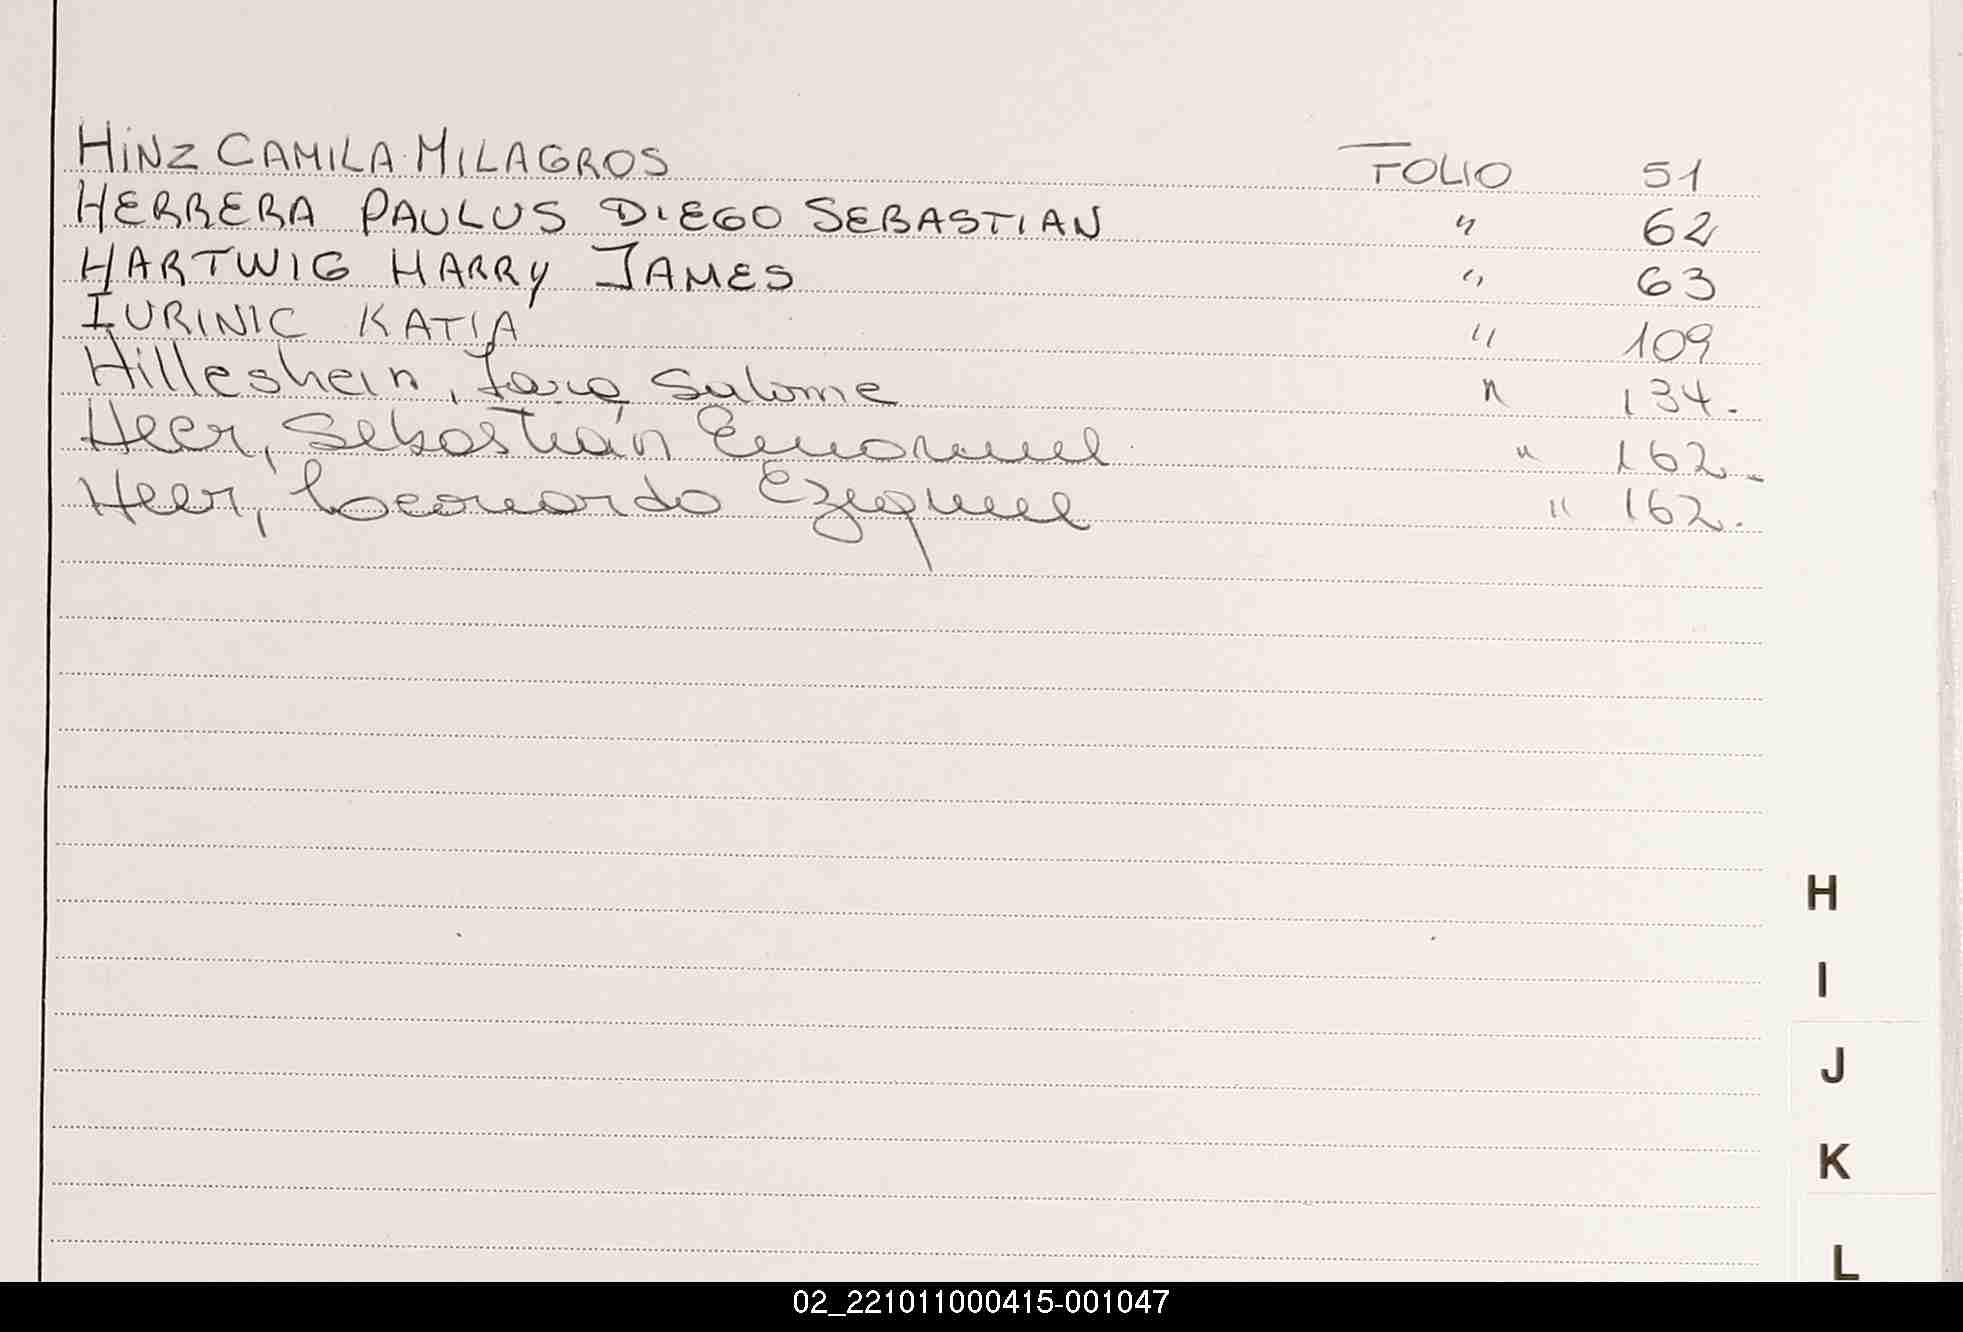 HINZ CAMILA MILAGROS FOLIO 51
HERRERA PAULUS DIEGO SEBASTIAN " 62
HARTWIG HARRY JAMES " 63
IURINIC KATIA " 109
Hilleshein, Sara Salome " 134.
Heer, Sebastián Emanuel " 162.
Heer, Leonardo Ezequiel " 162.
H
I
J
K
L
02_221011000415-001047